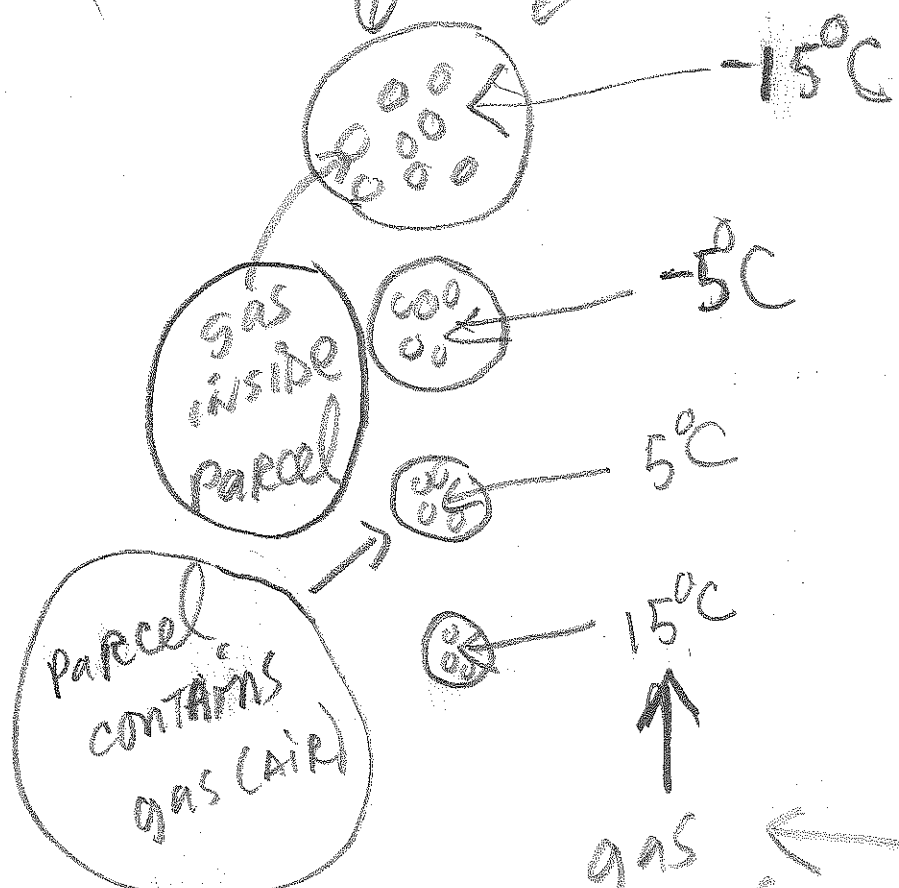 -15°C
-5°C
gas
inside
parcel
5°C
15°C
parcel
contains
gas (AIR)
gas